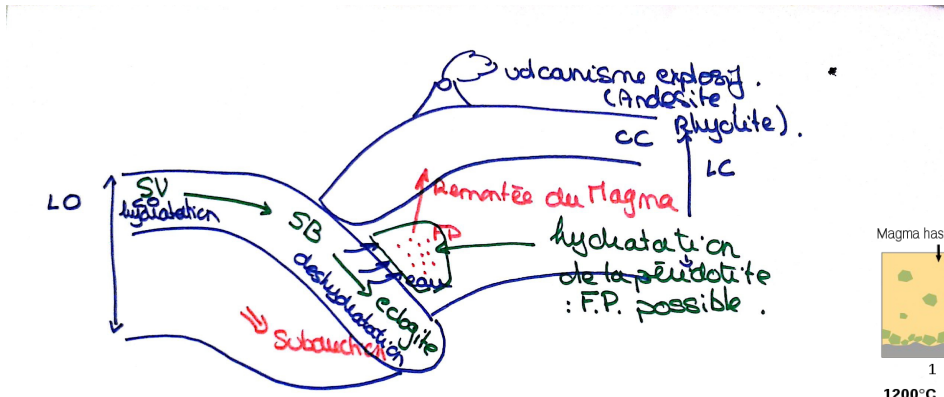 volcanisme explosif.
(Andésite
Rhyolite).
CC
LC
LO
SV
hydratation
SB
Remontée du Magma
FP
hydratation
de la péridotite
: F.P. possible.
eau
déshydratation
éclogite
Subduction
Magma
1
1200°C